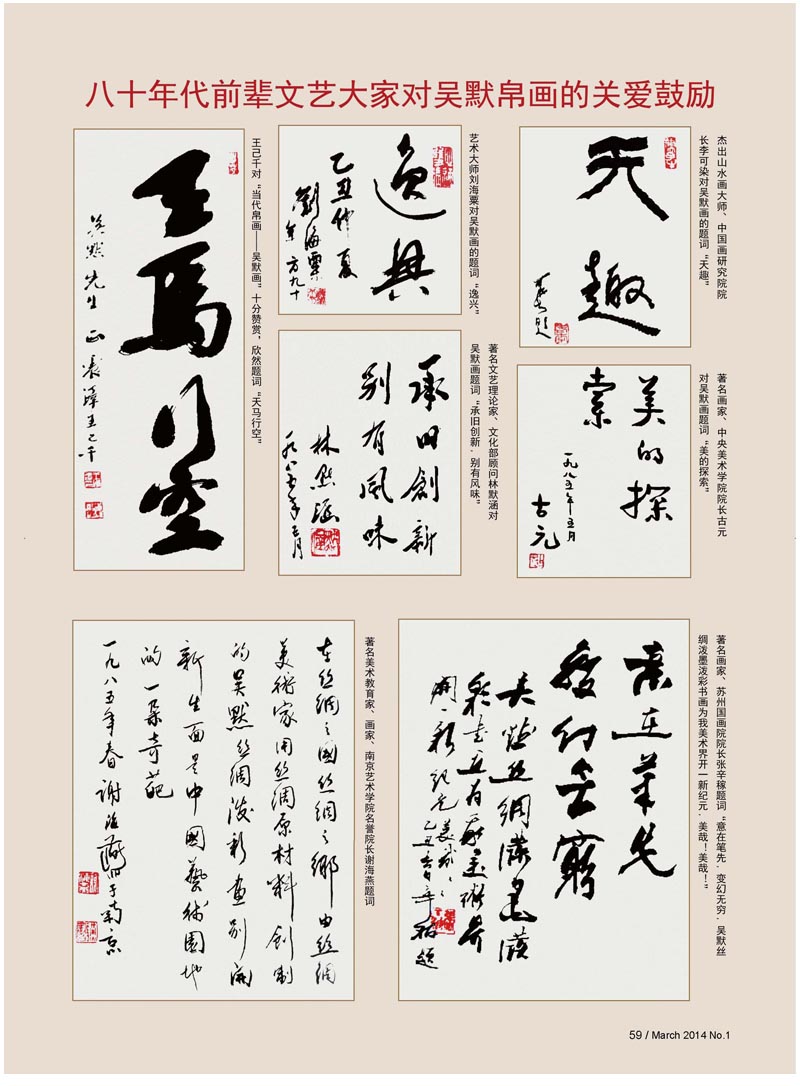 八十年代前辈文艺大家对吴默帛画的关爱鼓励
天趣
杰出山水画大师、中国画研究院院
长李可染对吴默画的题词“天趣”
逸興
乙丑仲夏
劉海粟
年方九十
艺术大师刘海粟对吴默画的题词“逸兴”
天馬行空
吴默先生正 王己千
王己千对“当代帛画——吴默画”十分赞赏，欣然题词“天马行空”
美的探
索
一九八五年五月
古元
著名画家、中央美术学院院长古元
对吴默画题词“美的探索”
承旧創新
别有風味
林默涵
一九八五年五月
著名文艺理论家、文化部顾问林默涵对
吴默画题词“承旧创新，别有风味”
意在筆先
變幻無窮
吴默丝綢潑墨潑
彩書画为我美術界
開一新紀元美哉
著名画家、苏州国画院院长张辛稼题词“意在笔先，变幻无穷，吴默丝
绸泼墨泼彩书画为我美术界开一新纪元，美哉！美哉！”
在丝綢之國丝綢之鄉由丝綢
美術家用丝綢原材料创制
的吴默丝綢潑彩画别開
新生面是中國藝術園地
的一朵奇葩
一九八五年春謝海燕於南京
著名美术教育家、画家、南京艺术学院名誉院长谢海燕题词
59 / March 2014 No.1